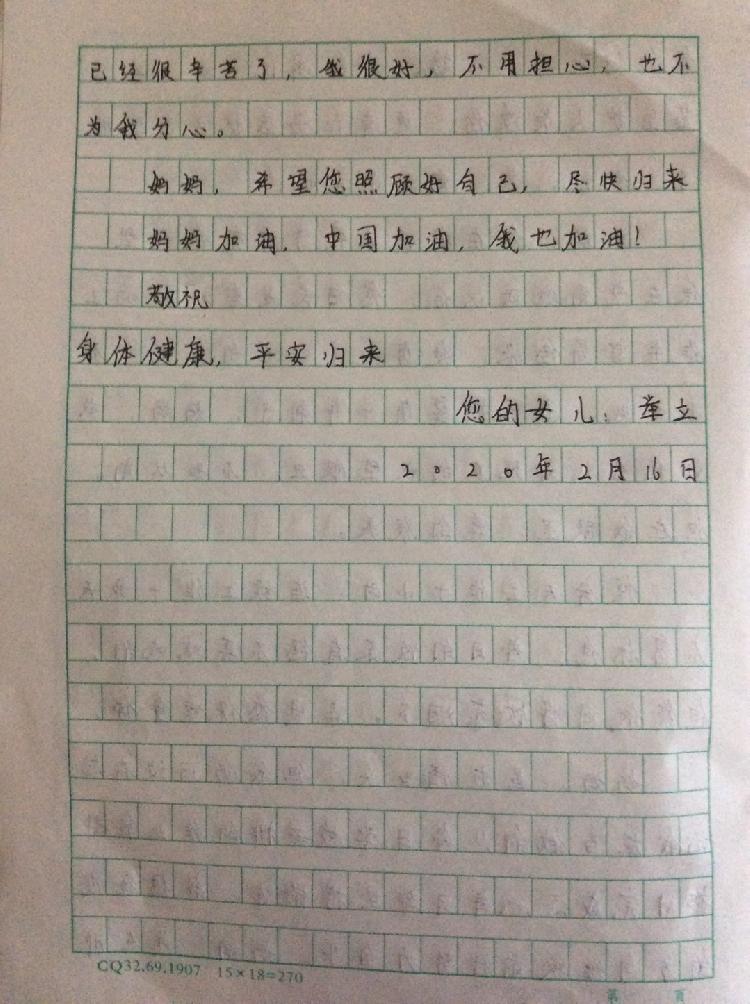 已经很辛苦了，我很好，不用担心，也不
为我分心。
妈妈，希望您照顾好自己，尽快归来
妈妈加油，中国加油，我也加油！
敬祝
身体健康，平安归来
您的女儿：莘立
2020年2月16日
CQ32.69.1907 15×18=270
第 页